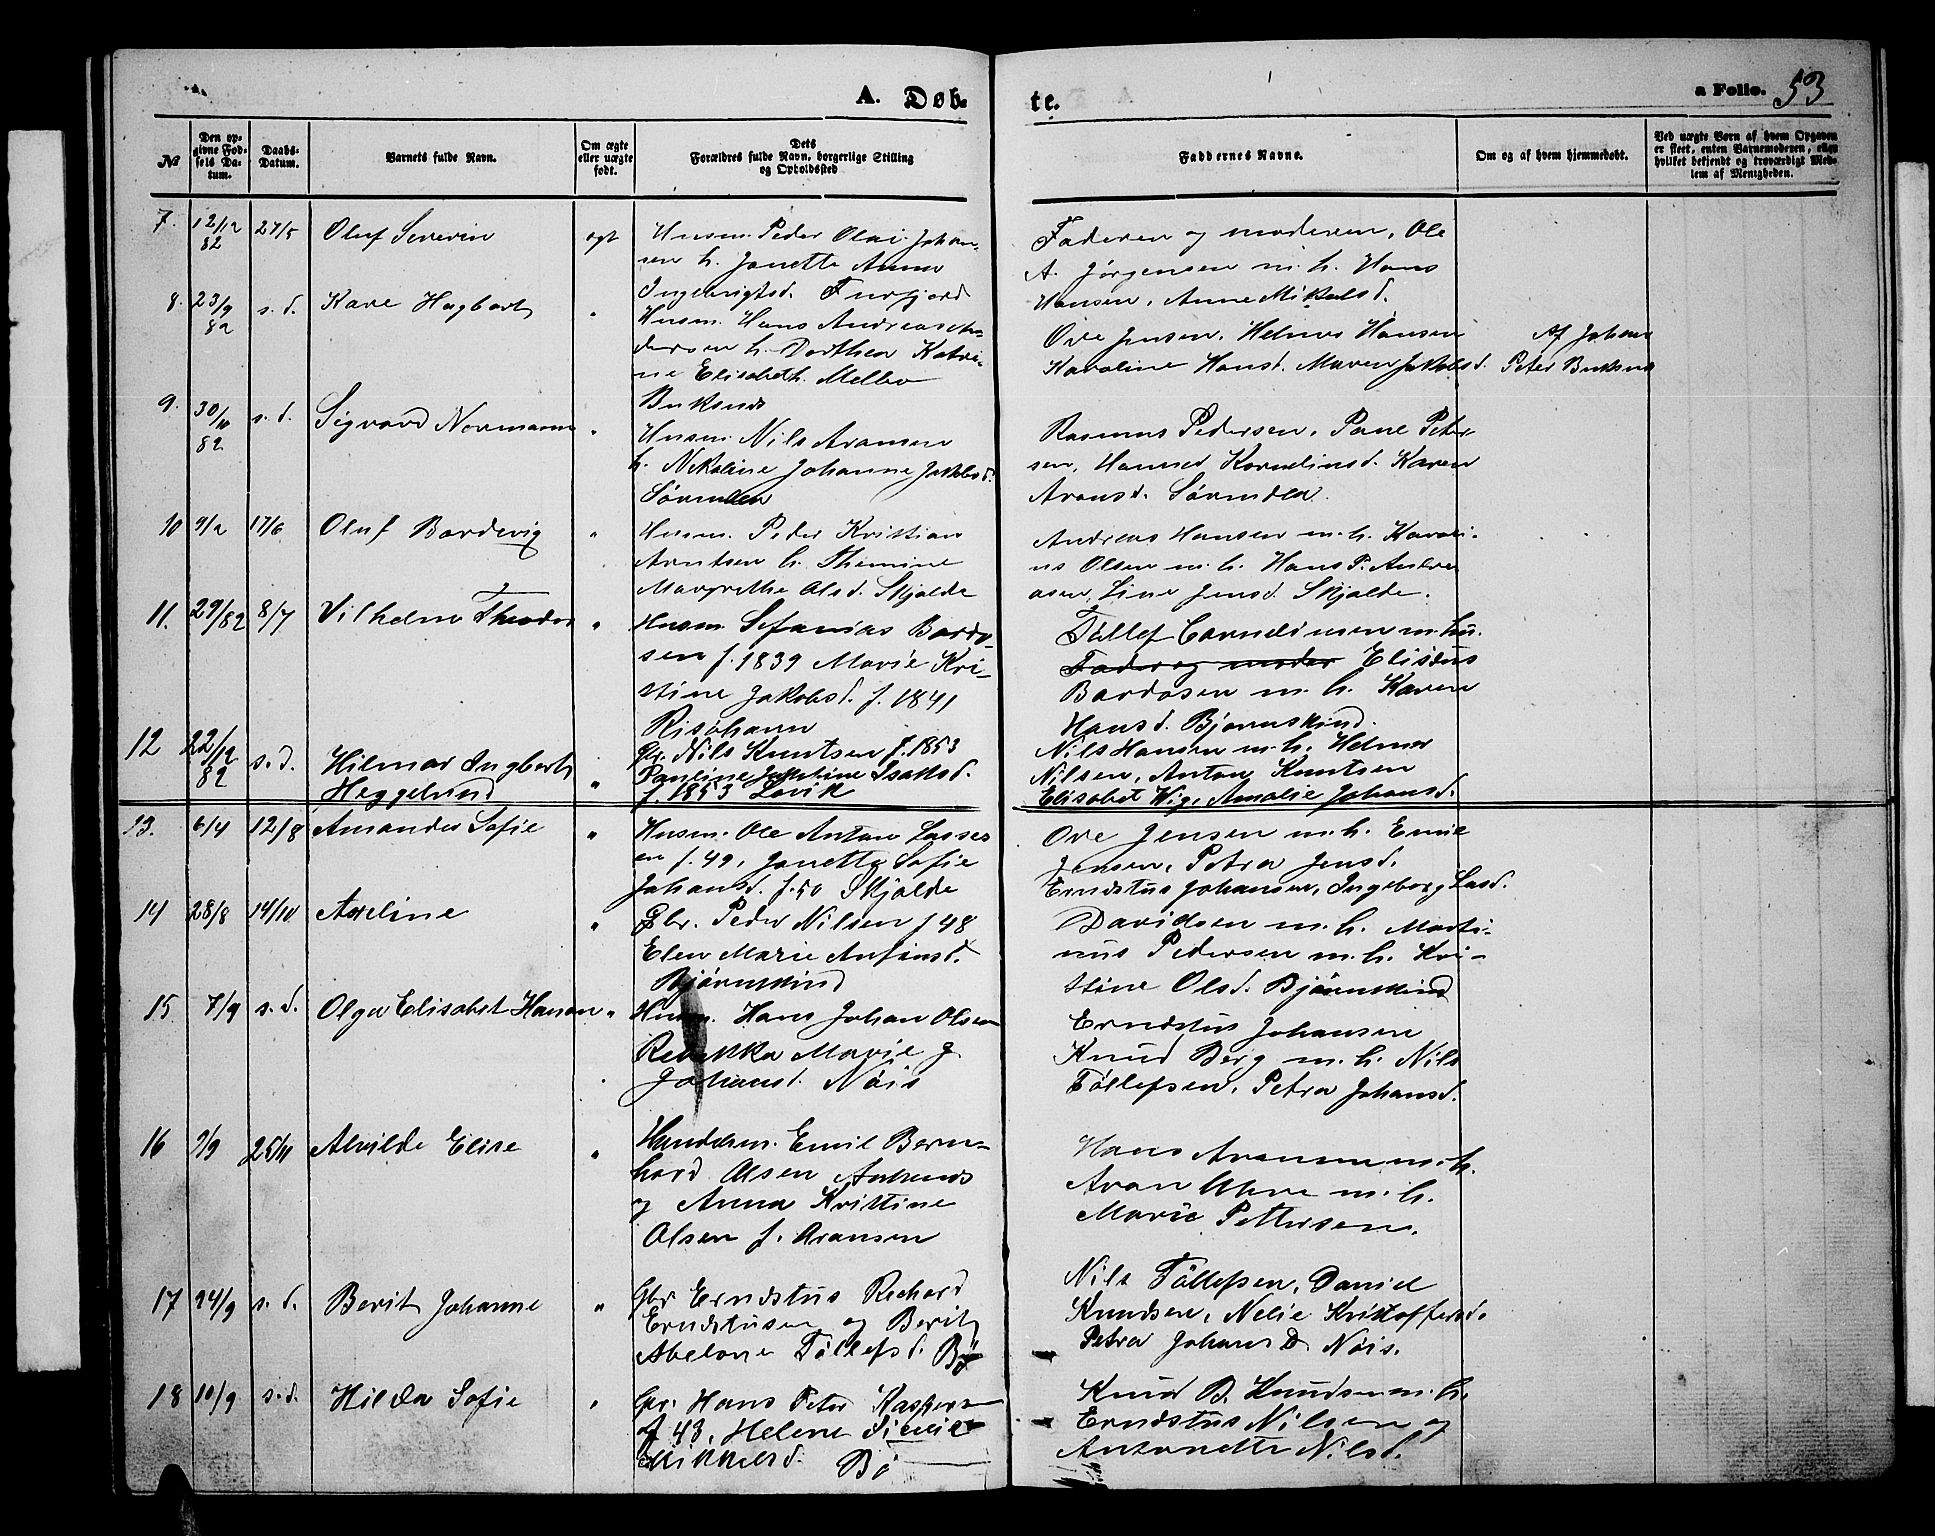 A. Døb-
te.
a Folio. 53
№
Den op-
givne Fød-
sels Da-
tum.
Daabs-
Datum.
Barnets fulde Navn.
Om ægte
eller uægte
født.
Dets
Forældres fulde Navn, borgerlige Stilling
og Opholdssted
Faddernes Navne.
Om og af hvem hjemmedøbt.
Ved uægte Børn af hvem Opgaven
er skeet, enten Barnemoderen, eller
hvilket bekjendt og troværdigt Med-
lem af Menigheden.
7. 12/12 82 27/5 Oluf Severin egt
Husm. Peder Olai Johan-
sen h. Janette Anna
Ingebrigtsd. Furfjord
Faderen og moderen, Ole
A. Jørgensen m. h. Hans
Hansen, Anne Mikalsd.
8. 23/9 82 s. d. Kare Hagbart "
Husm. Hans Andreas
h. Dorthea Katri-
ne Elisabeth. Melbo
Buksnes
Ove Jensen, Helmer Hansen
Karoline Hansd. Maren Jakobsd.
Af Johan
Peter Buksnes
9. 30/10 82 s. d. Sigvard Normann "
Husm. Nils Aransen
h. Nikoline Johanne Jakobsd.
Sørmelen
Rasmus Pedersen, Pane Peter-
sen, Hanna Kornelinsd. Karen
Aronsd. Sørmelen.
10 9/2 17/6 Oluf Bardevig "
Husm. Peder Kristian
Arntsen h. Themine
Margrethe Olsd. Skjolde
Andreas Hansen m. h. Karoli-
us Olsen m. h. Hans P. Andre
asen, Line Jensd. Skjolde.
11. 29/82 8/7 Vilhelm Theodor "
Husm. Sefanias Bardo-
sen f. 1839 Marie Kri-
stine Jakobsd. f. 1841
Risøhavn
Tøllef Cornelinsen m. hu.
Fader og moder Elisæus
Bardosen m. h. Karen
Hansd. Bjørnskind.
12 22/12 82 s. d. Hilmar Ingbart
Heggelund "
Gr. Nils Knutsen f. 1853
Pauline Isaksd.
f. 1853 Lovik
Nils Hansen m. h. Helmer
Nilsen, Anton Knutsen
Elisabet Wig, Amalie Johansd.
13. 6/4 12/8 Amanda Sofie "
Husm. Ole Anton Lasses
en f. 49, Janette Sofie
Johansd. f. 50 Skjolde
Ove Jensen m. h. Emil
Jensen, Petra Jensd.
Erndstus Johansen, Ingeborg Lasd.
14 28/8 14/10 Axeline "
Gbr. Peder Nilsen f 48
Elen Marie Anfinsd.
Bjørnskind
Davidsen m. h. Marti-
nus Pedersen m. h. Kri-
stine Olsd. Bjørnskind
15 7/9 s. d. Olga Elisabet Hanson "
Husm. Hans Johan Olsen
Rebekka Marie J.
Johansd. Nøis
Erndstus Johansen
Knud Berg m. h. Nils
Tøllefsen, Petra Johansd.
16 9/9 25/11 Alvilde Elise "
Handelsm. Emil Bern-
hard Olsen
og Anna Kristine
Olsen f. Aransen
Hans Aransen m. h.
Aron m. h.
Marie Pettersen.
17 24/9 s. d. Berit Johanne "
Gbr Erndstus Richard
Erndstusen og Berit
Abelone Tøllefsd. Bø
Nils Tøllefsen, Daniel
Knudsen, Nelie Kristoffersd.
Petra Johans D. Nøis.
18 10/9 s. d. Hilda Sofie "
Gr. Hans Peter Kaspersen
f 43, Helene
Mikkelsd. Bø
Knud B. Knudsen m. h.
Erndstus Nilsen og
Antonette Nilsd.